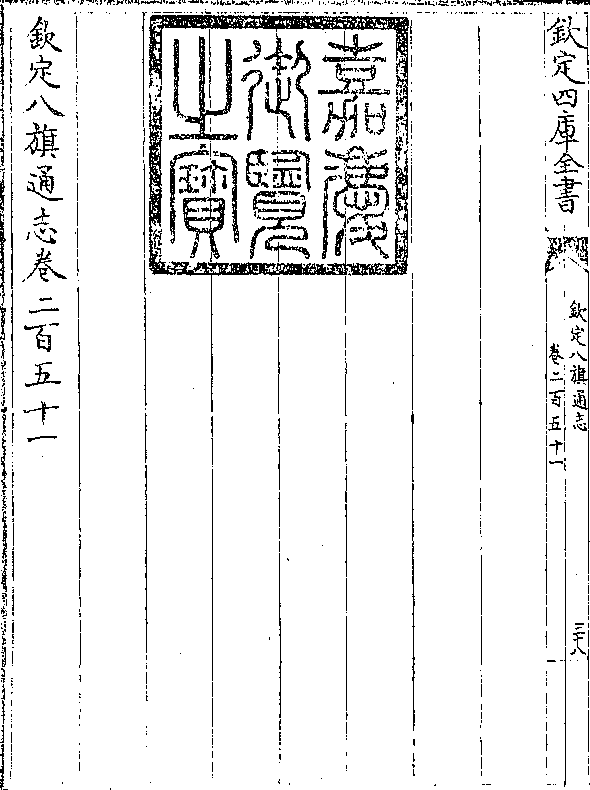 欽定四庫全書
欽定八旗通志
卷二百五十一
三十八
嘉慶
御覽
之寶
欽定八旗通志卷二百五十一